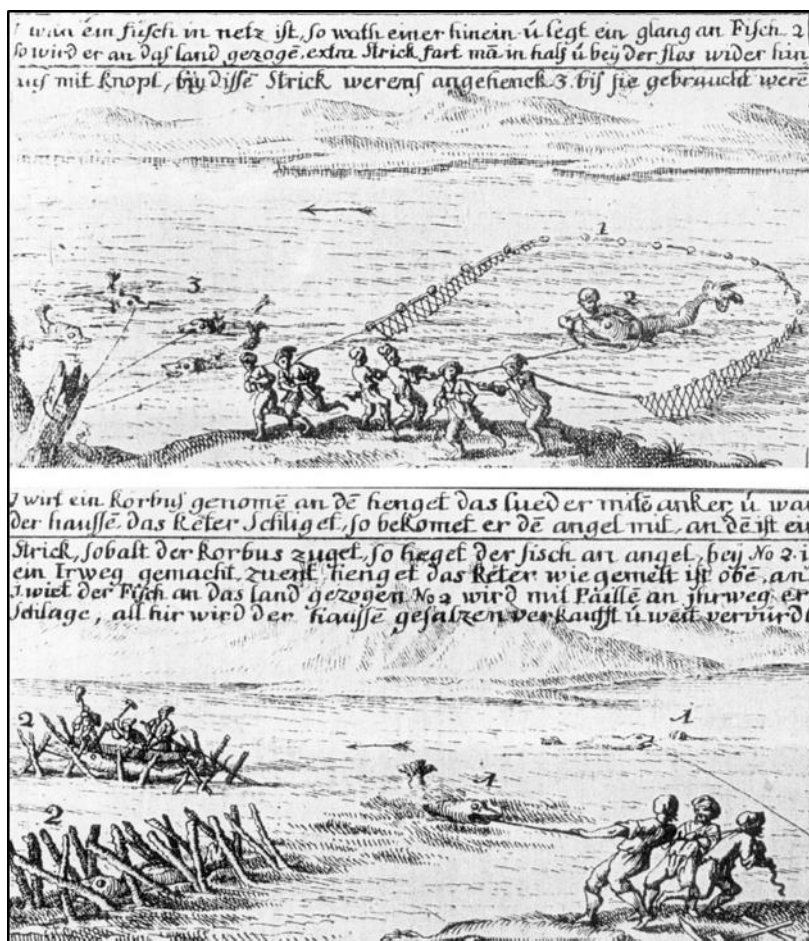 1 wan ein fusch in netz ist, so wath einer hinein ŭ legt ein glang an Fisch 2
so wird er an das land gezogē, extra Strick fart mā in hals ŭ bey der flos wider hin
aus mit knopf, bey dissē Strick werens angehenck 3. bis sie gebraucht werē
1
3
2
1 wirt ein korbus genomē an dē henget das lueder mitē anker, ŭ wa
der haussē das keter schliget, so bekomet er dē angel mit, an dē ist ein
Strick, sobalt der korbus zuget, so heget der fisch an angel, bey No 2. i
ein Irweg gemacht, zuent henget das keter wie gemelt ist obē, an
1. wiet der Fisch an das land gezogen No 2 wird mit Paillē an jhrweg er
schlage, all hir wird der haussē gesalzen verkaufft ŭ weit vervürd
2
1
1
2